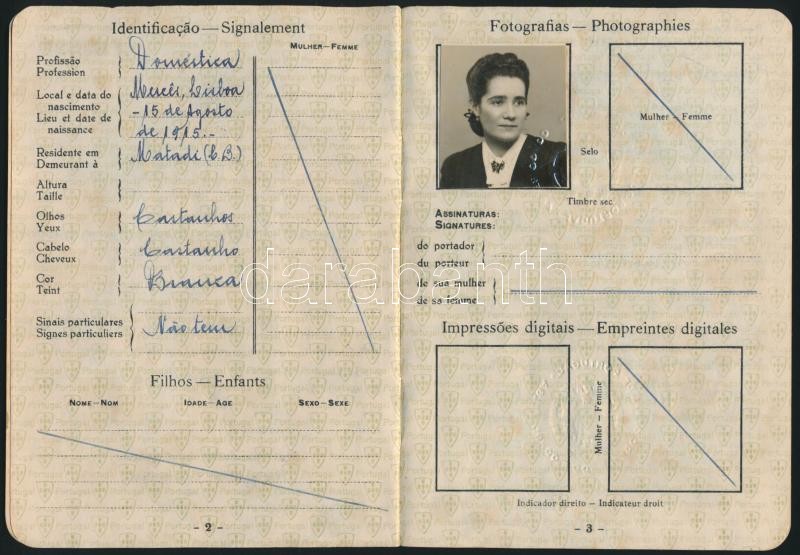 Identificação — Signalement
MULHER — FEMME
Profissão
Profession
Doméstica
Local e data do
nascimento
Lieu et date de
naissance
Mercês, Lisboa
- 15 de Agosto
de 1915.-
Residente em
Demeurant à
Matadi (C.B.)
Altura
Taille
Olhos
Yeux
Castanhos
Cabelo
Cheveux
Castanho
Cor
Teint
Branca
Sinais particulares
Signes particuliers
Não tem
Filhos — Enfants
NOME — NOM IDADE — AGE SEXO — SEXE
- 2 -
Fotografias — Photographies
Mulher — Femme
Selo
Timbre sec
ASSINATURAS:
SIGNATURES:
do portador
du porteur
de sua mulher
de sa femme
Impressões digitais — Empreintes digitales
Mulher — Femme
Indicador direito — Indicateur droit
- 3 -
darabanth